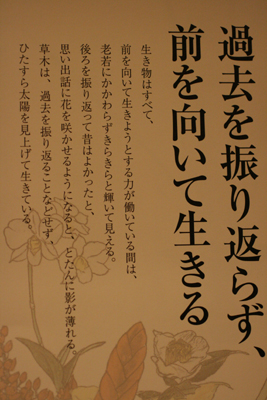 過去を振り返らず、
前を向いて生きる
生き物はすべて、
前を向いて生きようとする力が働いている間は、
老若にかかわらずきらきらと輝いて見える。
後ろを振り返って昔はよかったと、
思い出話に花を咲かせるようになると、とたんに影が薄れる。
草木は、過去を振り返ることなどせず、
ひたすら太陽を見上げて生きている。